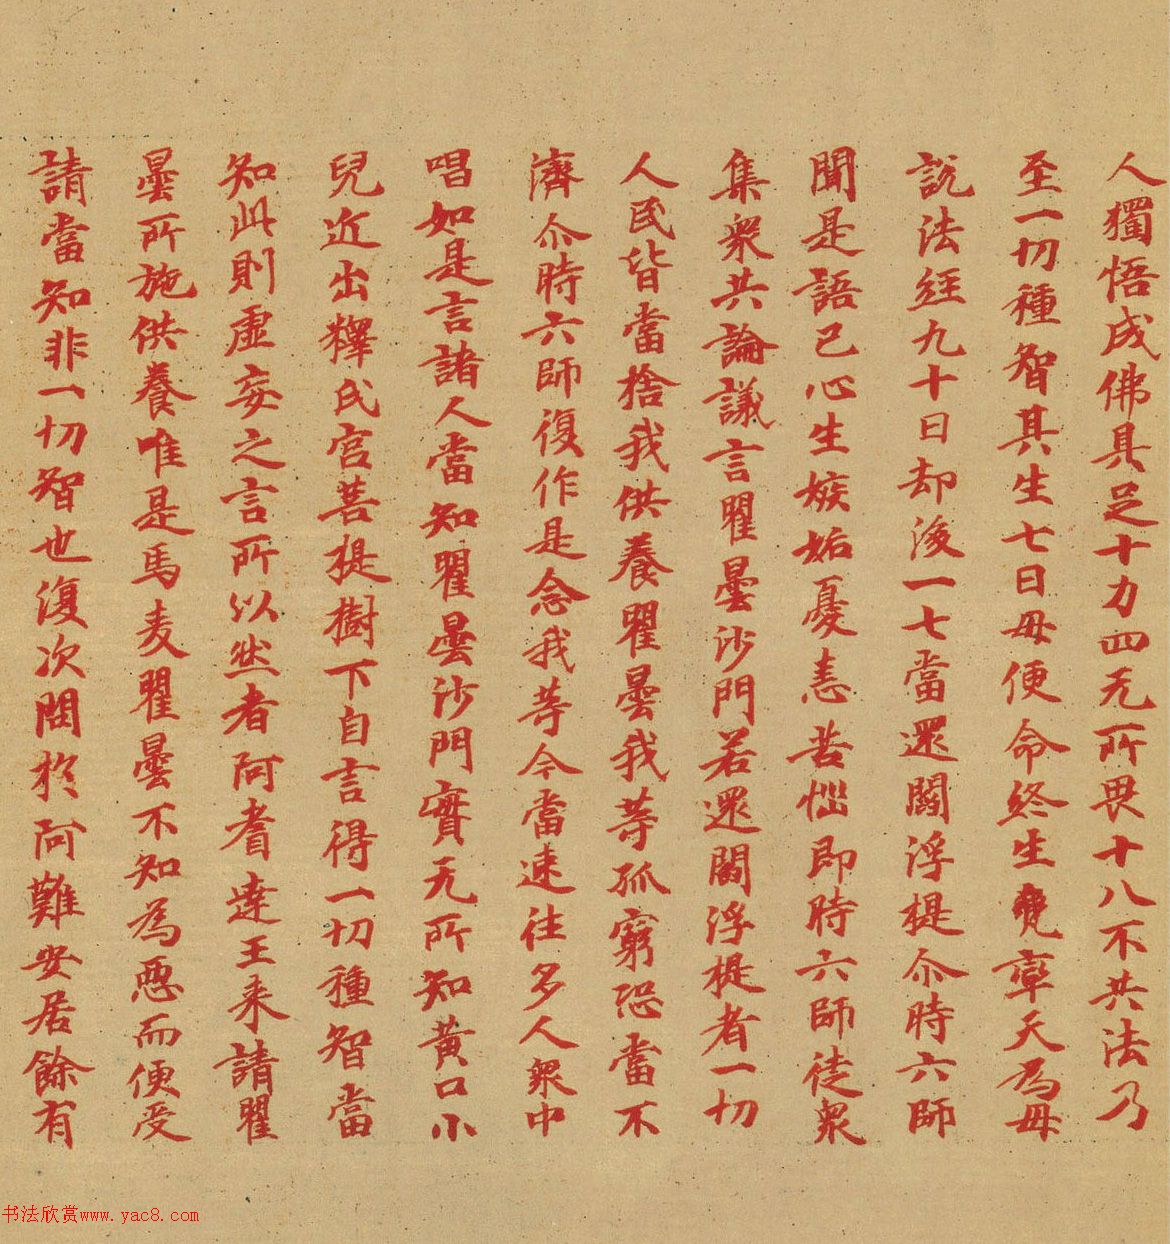 人獨悟成佛具足十力四无所畏十八不共法乃
至一切種智其生七日母便命終生兜率天為母
說法經九十日却後一七當還閻浮提尒時六師
聞是語已心生嫉妬憂恚苦惱即時六師徒衆
集衆共論議言瞿曇沙門若還閻浮提者一切
人民皆當捨我供養瞿曇我等孤窮恐當不
濟尒時六師復作是念我等今當速往多人衆中
唱如是言諸人當知瞿曇沙門實无所知黃口小
兒近出釋氏宮菩提樹下自言得一切種智當
知此則虛妄之言所以然者阿耆達王来請瞿
曇所施供養唯是馬麦瞿曇不知為惡而便受
請當知非一切智也復次問於阿難安居餘有
书法欣赏www.yac8.com